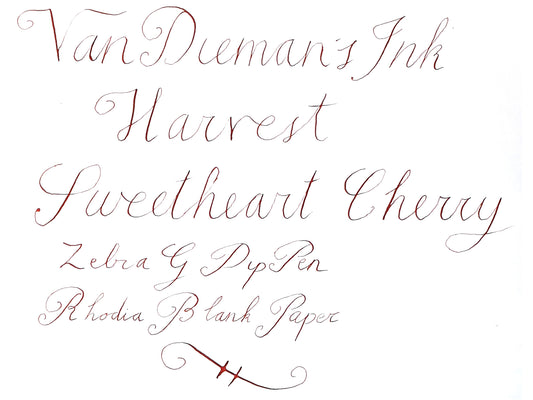 Van Dieman's Ink
Harvest
Sweetheart Cherry
Zebra G Dip Pen
Rhodia Blank Paper